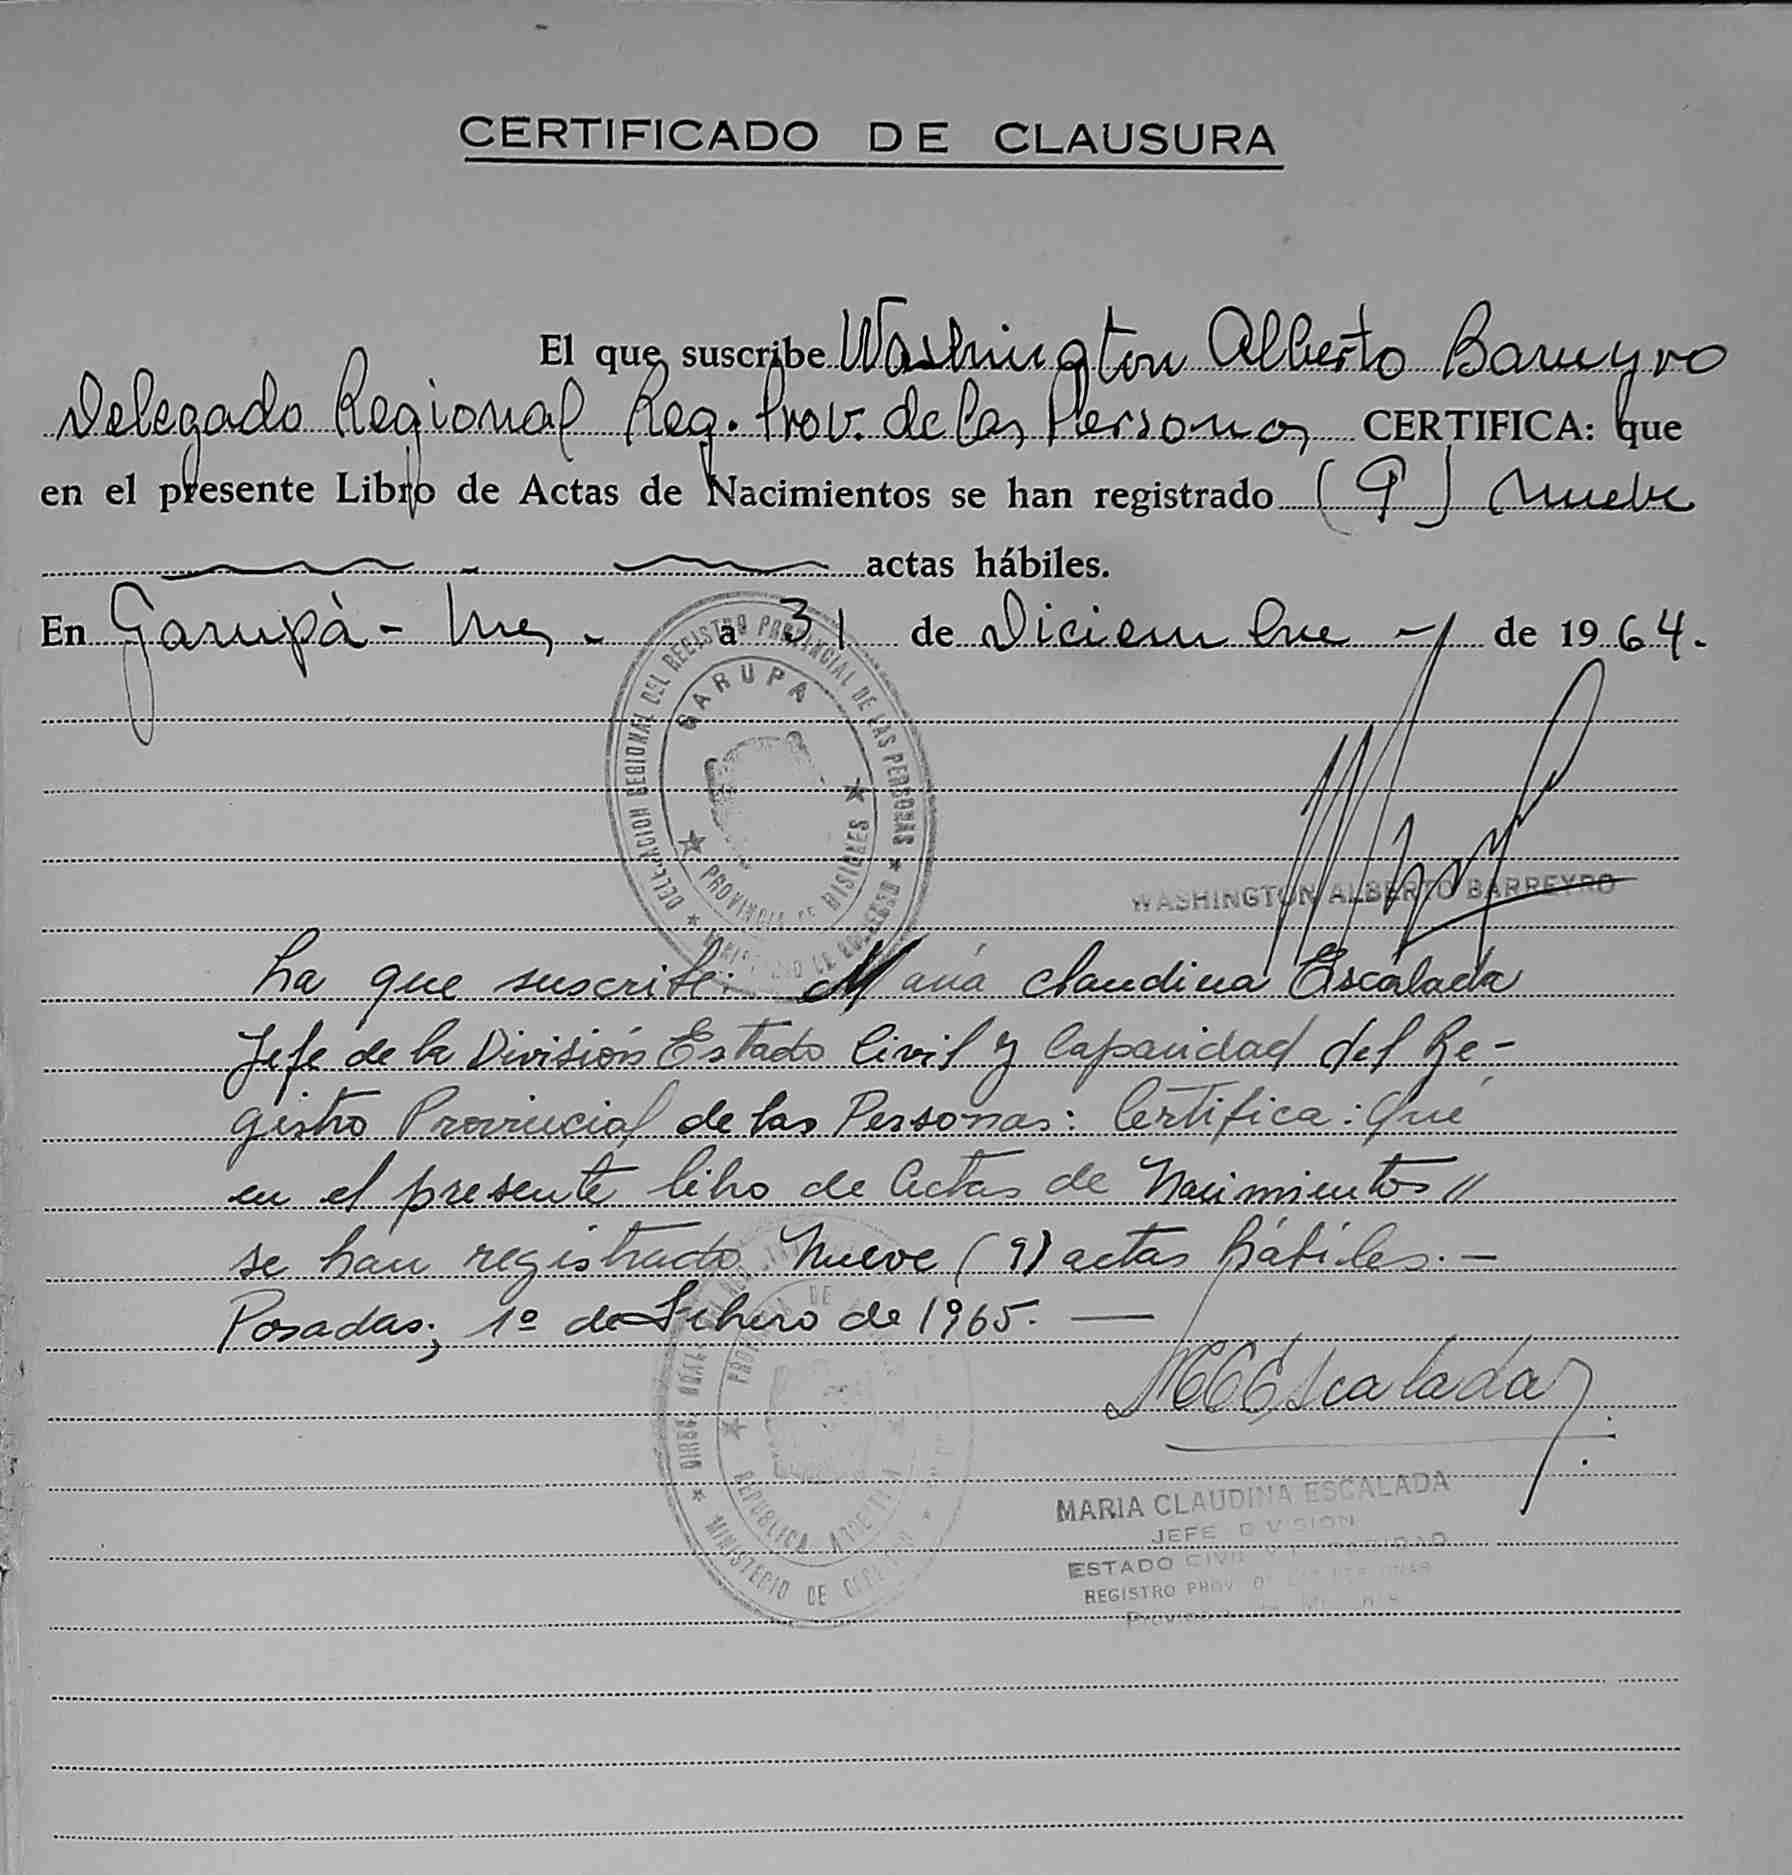 CERTIFICADO DE CLAUSURA
El que suscribe Washington Alberto Barreyro
Delegado Regional Reg. Prov. de las Personas CERTIFICA: que
en el presente Libro de Actas de Nacimientos se han registrado (9) nueve
actas hábiles.
En Garupá - Mnes. - a 31 de Diciembre - de 1964.
DELEGACION REGIONAL DEL REGISTRO PROVINCIAL DE LAS PERSONAS
GARUPA
PROVINCIA DE MISIONES
WASHINGTON ALBERTO BARREYRO
La que suscribe: María Claudina Escalada
Jefe de la División Estado Civil y Capacidad del Re-
gistro Provincial de las Personas: Certifica: Que
en el presente libro de Actas de Nacimientos //
se han registrado Nueve (9) actas hábiles. -
Posadas; 1º de Febrero de 1965. —
MCEscalada
REPUBLICA ARGENTINA
MINISTERIO DE GOBIERNO
MARIA CLAUDINA ESCALADA
JEFE DIVISION
ESTADO CIVIL Y CAPACIDAD
REGISTRO PROV. DE LAS PERSONAS
Provincia de Misiones